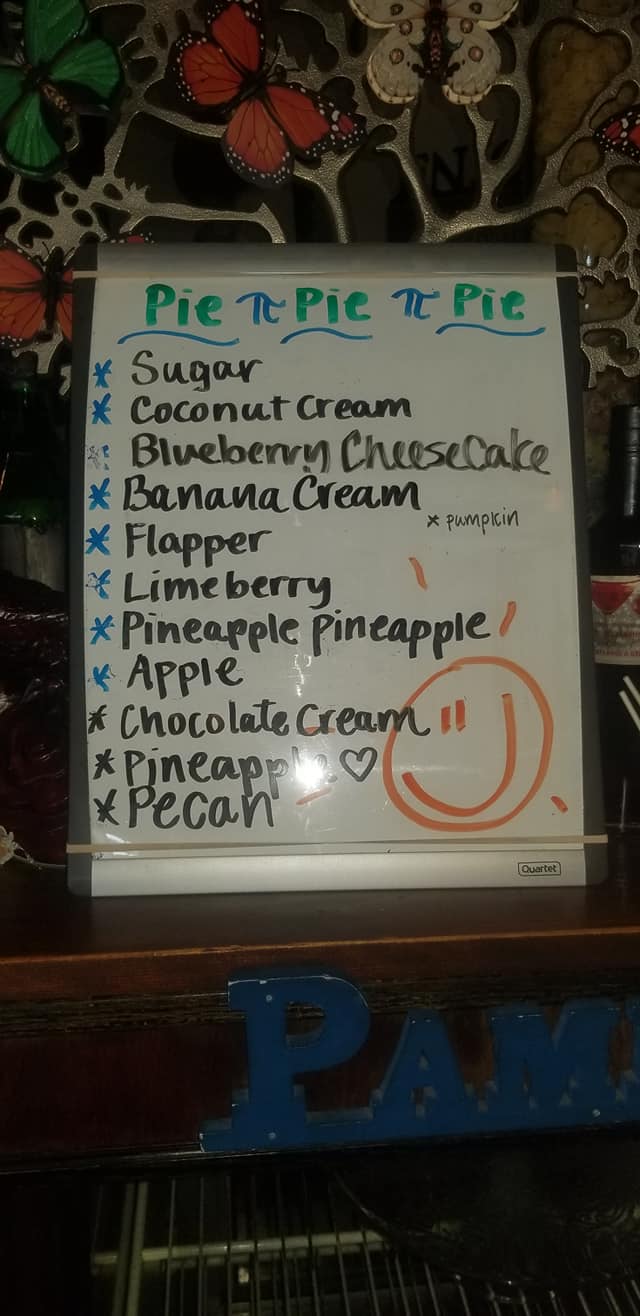 Pie π Pie π Pie
* Sugar
* Coconut Cream
* Blueberry CheeseCake
* Banana Cream
* pumpkin
* Flapper
* Limeberry
* Pineapple pineapple
* Apple
* Chocolate Cream
* Pineapple ♡
* Pecan
Quartet
PAM